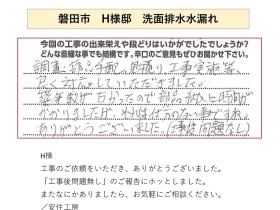 磐田市　H様邸　洗面排水水漏れ
今回の工事の出来栄えや段どりはいかがでしたでしょうか?
どんな些細な事でも結構です。辛口のご意見もぜひお聞かせ下さい。
調査、部品手配、見積り、工事実施等、
良く対応していただきました。
築年数が古かったので部品
かかりましたが、
ありがとうございました。(工事後問題なし)
H様
工事のご依頼をいただき、ありがとうございました。
「工事後問題無し」のご報告にホッとしました。
またなにかありましたら、お気軽にご相談ください。
／安住工房